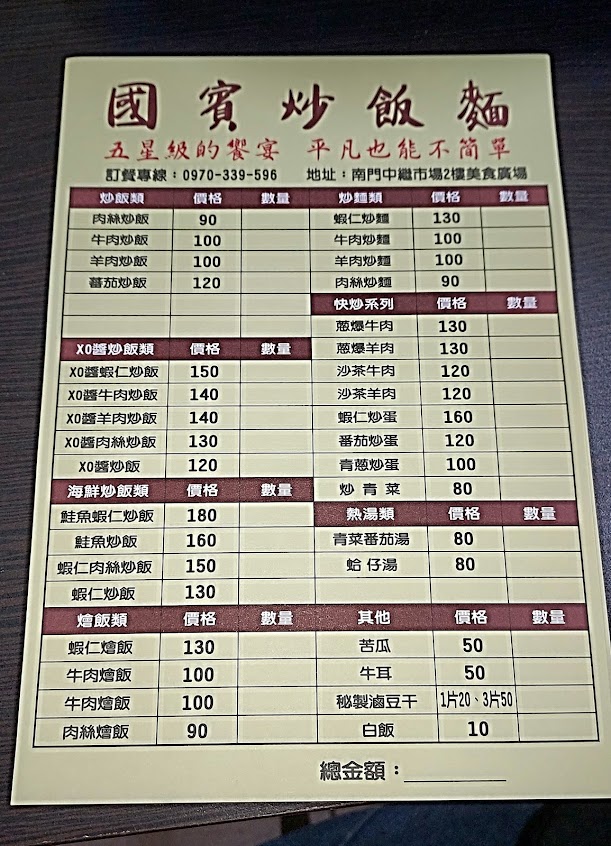 國賓炒飯麵
五星級的饗宴 平凡也能不簡單
訂餐專線：0970-339-596 地址：南門中繼市場2樓美食廣場
炒飯類 價格 數量
肉絲炒飯 90
牛肉炒飯 100
羊肉炒飯 100
蕃茄炒飯 120
XO醬炒飯類 價格 數量
XO醬蝦仁炒飯 150
XO醬牛肉炒飯 140
XO醬羊肉炒飯 140
XO醬肉絲炒飯 130
XO醬炒飯 120
海鮮炒飯類 價格 數量
鮭魚蝦仁炒飯 180
鮭魚炒飯 160
蝦仁肉絲炒飯 150
蝦仁炒飯 130
燴飯類 價格 數量
蝦仁燴飯 130
牛肉燴飯 100
牛肉燴飯 100
肉絲燴飯 90
炒麵類 價格 數量
蝦仁炒麵 130
牛肉炒麵 100
羊肉炒麵 100
肉絲炒麵 90
快炒系列 價格 數量
蔥爆牛肉 130
蔥爆羊肉 130
沙茶牛肉 120
沙茶羊肉 120
蝦仁炒蛋 160
番茄炒蛋 120
青蔥炒蛋 100
炒青菜 80
熱湯類 價格 數量
青菜番茄湯 80
蛤仔湯 80
其他 價格 數量
苦瓜 50
牛耳 50
秘製滷豆干 1片20、3片50
白飯 10
總金額：